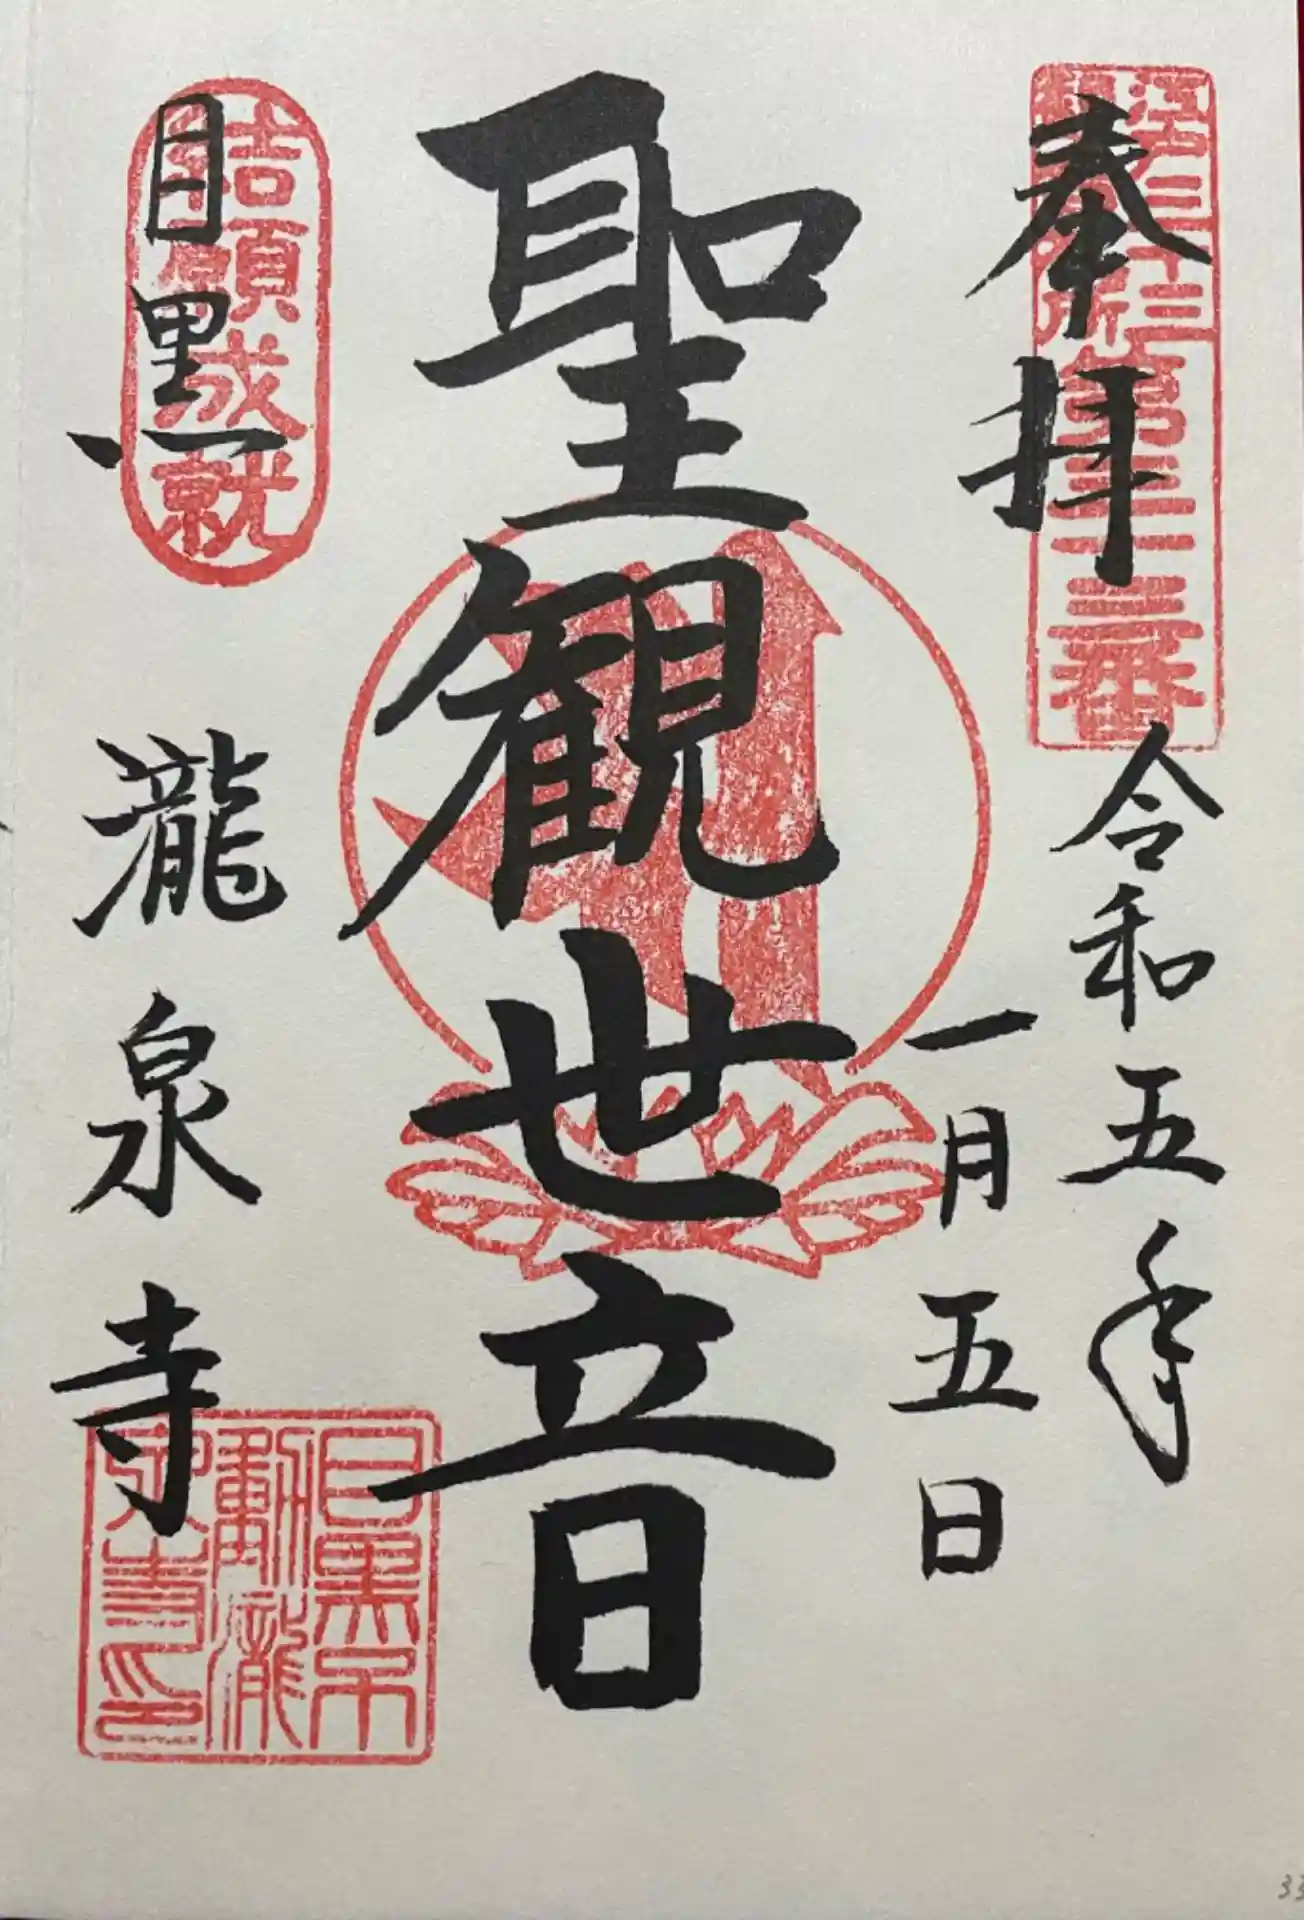 奉拝
江戸三十三観音札所第三十三番
令和五年
一月五日
聖観世音
結願成就
目黒
瀧泉寺
目黒不
動瀧
泉寺印
33